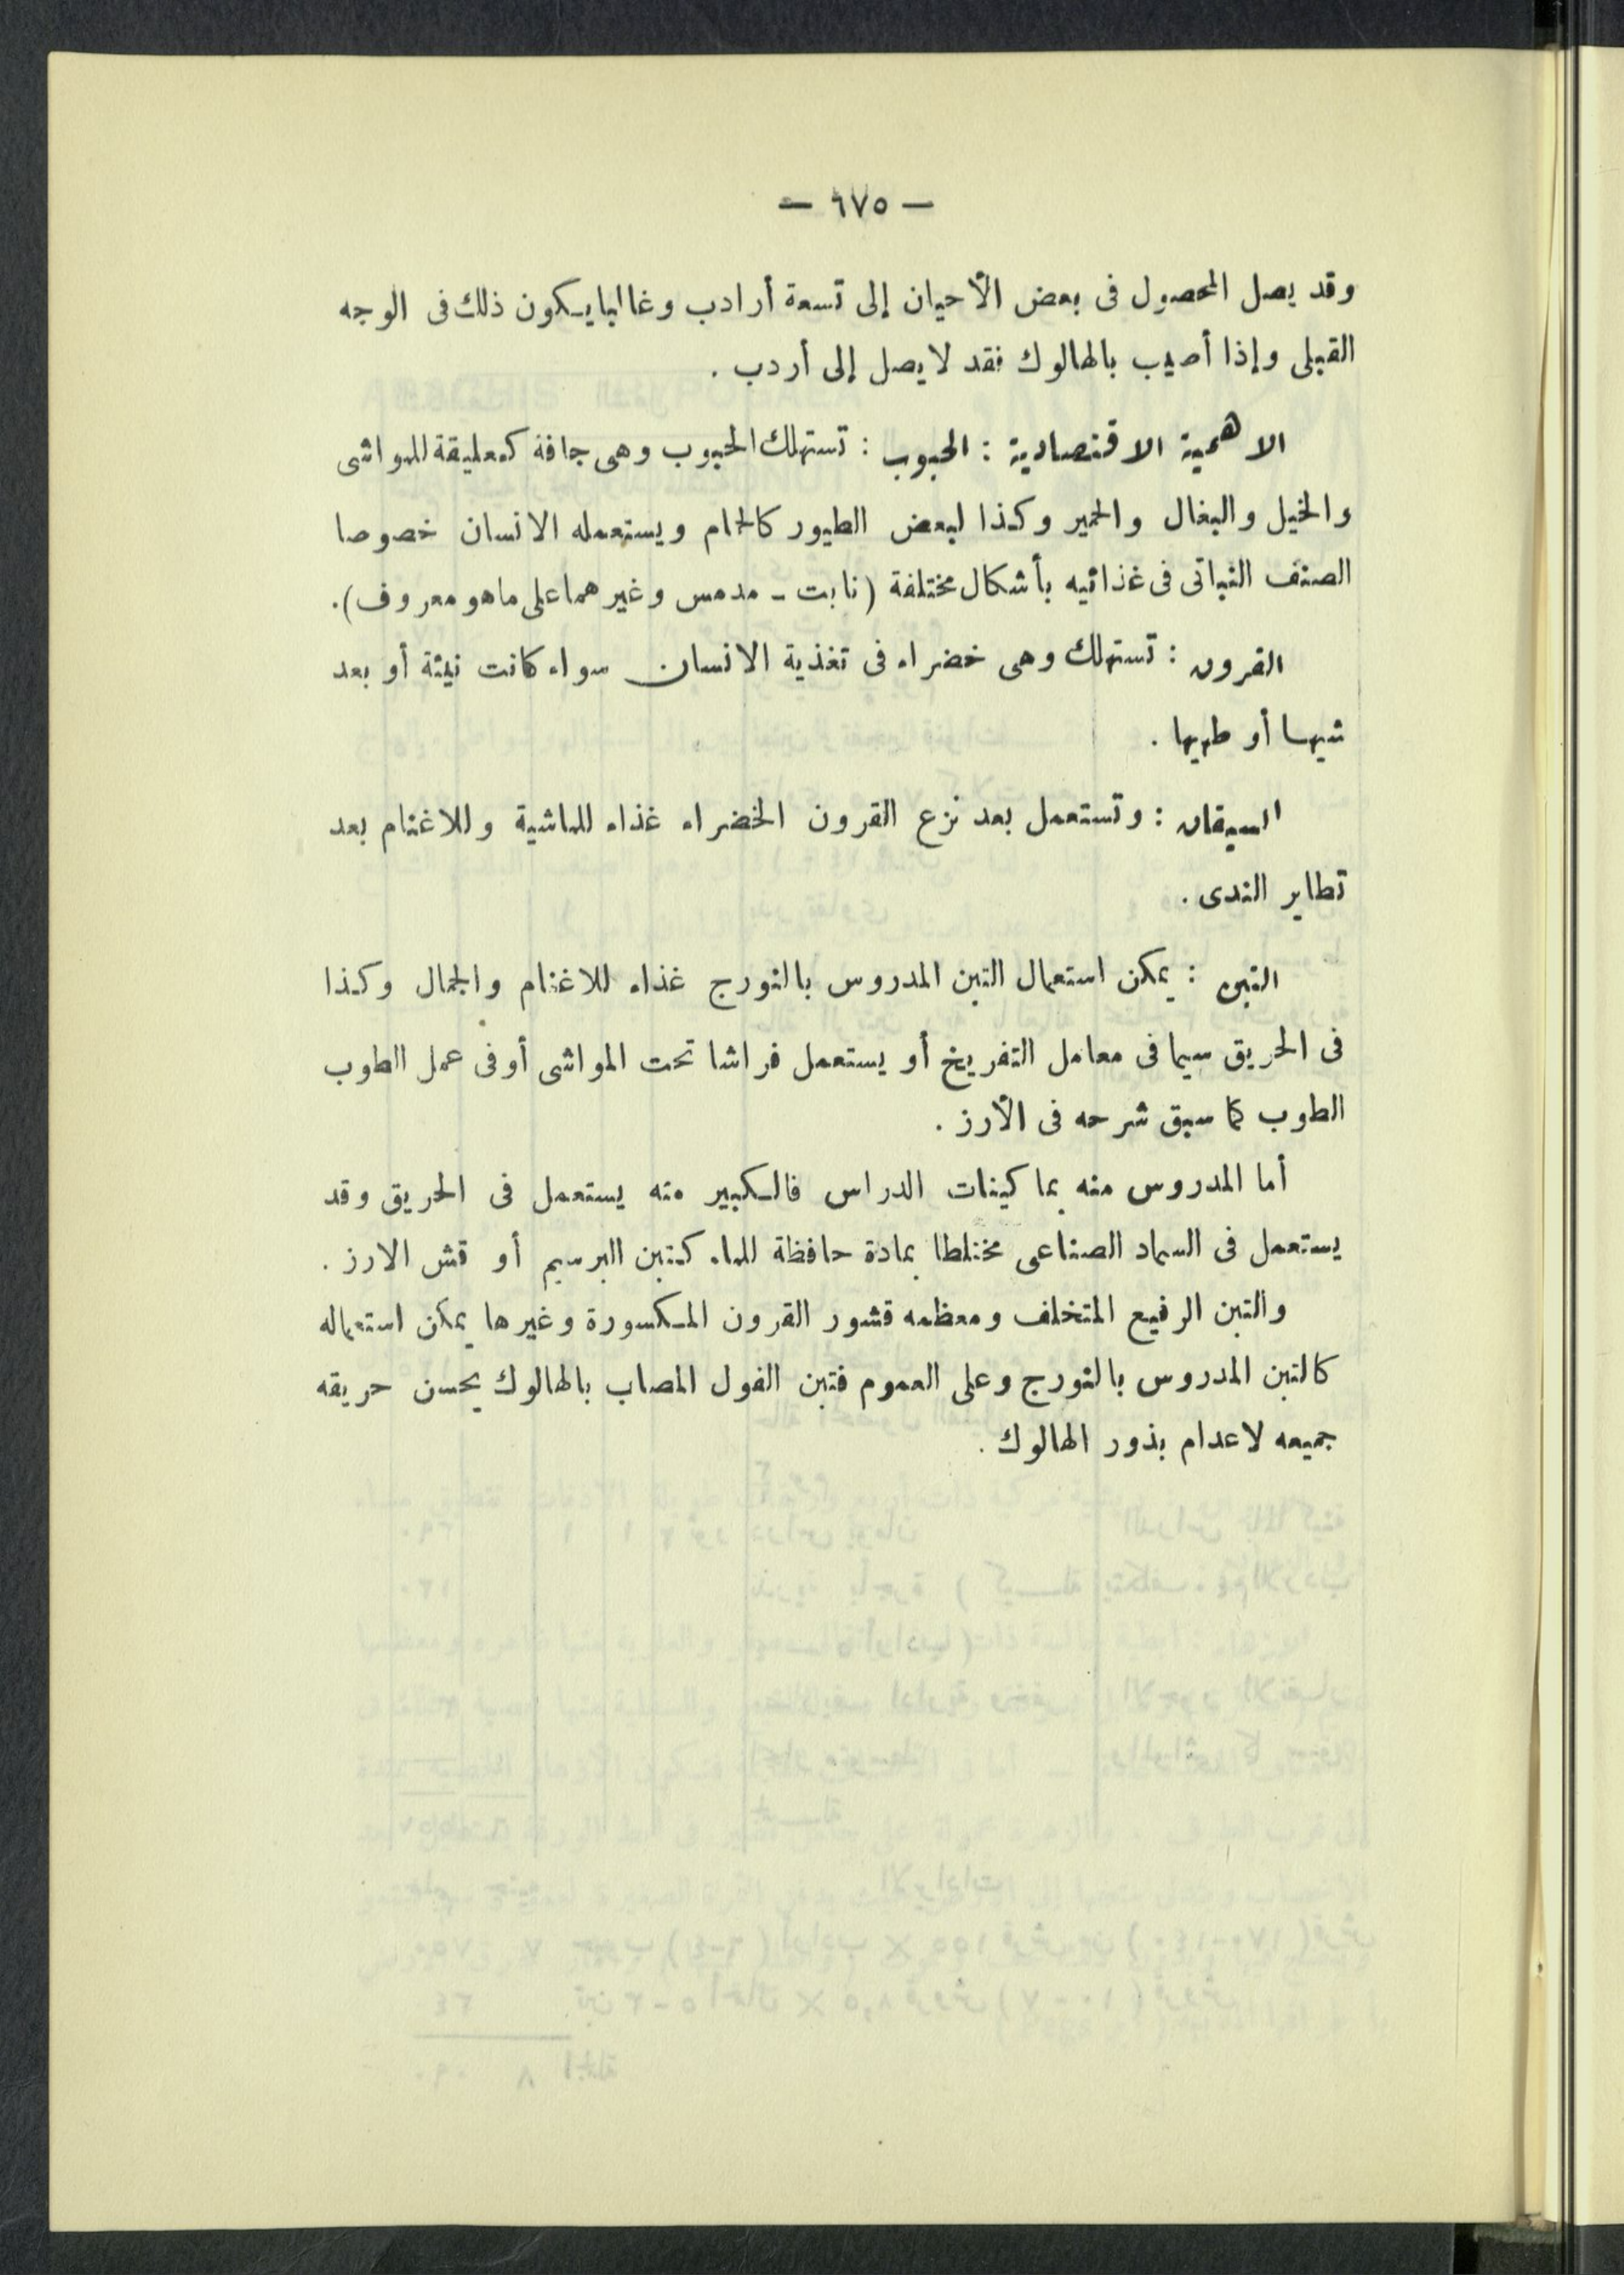 — ٦٧٥ —
وقد يصل المحصول فى بعض الأحيان إلى تسعة أرادب وغالبا يكون ذلك فى الوجه
القبلى وإذا أصيب بالهالوك فقد لا يصل إلى أردب .
الاهمية الاقتصادية : الحبوب : تستهلك الحبوب وهى جافة كعليقة للمواشى
والخيل والبغال والحمير وكذا لبعض الطيور كالحمام ويستعمله الانسان خصوصا
الصنف النباتى فى غذائيه بأشكال مختلفة (نابت - مدمس وغيرهما على ماهو معروف).
القرون : تستهلك وهى خضراء فى تغذية الانسان سواء كانت نيئة أو بعد
شيها أو طهيها .
السيقان : وتستعمل بعد نزع القرون الخضراء غذاء للماشية وللاغنام بعد
تطاير الندى .
التبن : يمكن استعمال التبن المدروس بالنورج غذاء للاغنام والجمال وكذا
فى الحريق سيما فى معامل التفريخ أو يستعمل فراشا تحت المواشى أو فى عمل الطوب
الطوب كما سبق شرحه فى الأرز .
أما المدروس منه بماكينات الدراس فالكبير منه يستعمل فى الحريق وقد
يستعمل فى السماد الصناعى مختلطا بمادة حافظة للماء كتبن البرسيم أو قش الارز .
والتبن الرفيع المتخلف ومعظمه قشور القرون المكسورة وغيرها يمكن استعماله
كالتبن المدروس بالنورج وعلى العموم فتبن الفول المصاب بالهالوك يحسن حريقه
جميعه لاعدام بذور الهالوك .